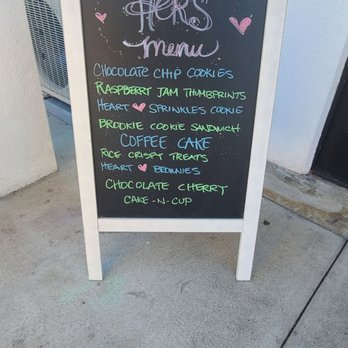 HERS
menu
CHOCOLATE CHIP COOKIES
RASPBERRY JAM THUMBPRINTS
HEART SPRINKLES COOKIE
BROOKIE COOKIE SANDWICH
COFFEE CAKE
RICE CRISPY TREATS
HEART BROWNIES
CHOCOLATE CHERRY
CAKE-N-CUP